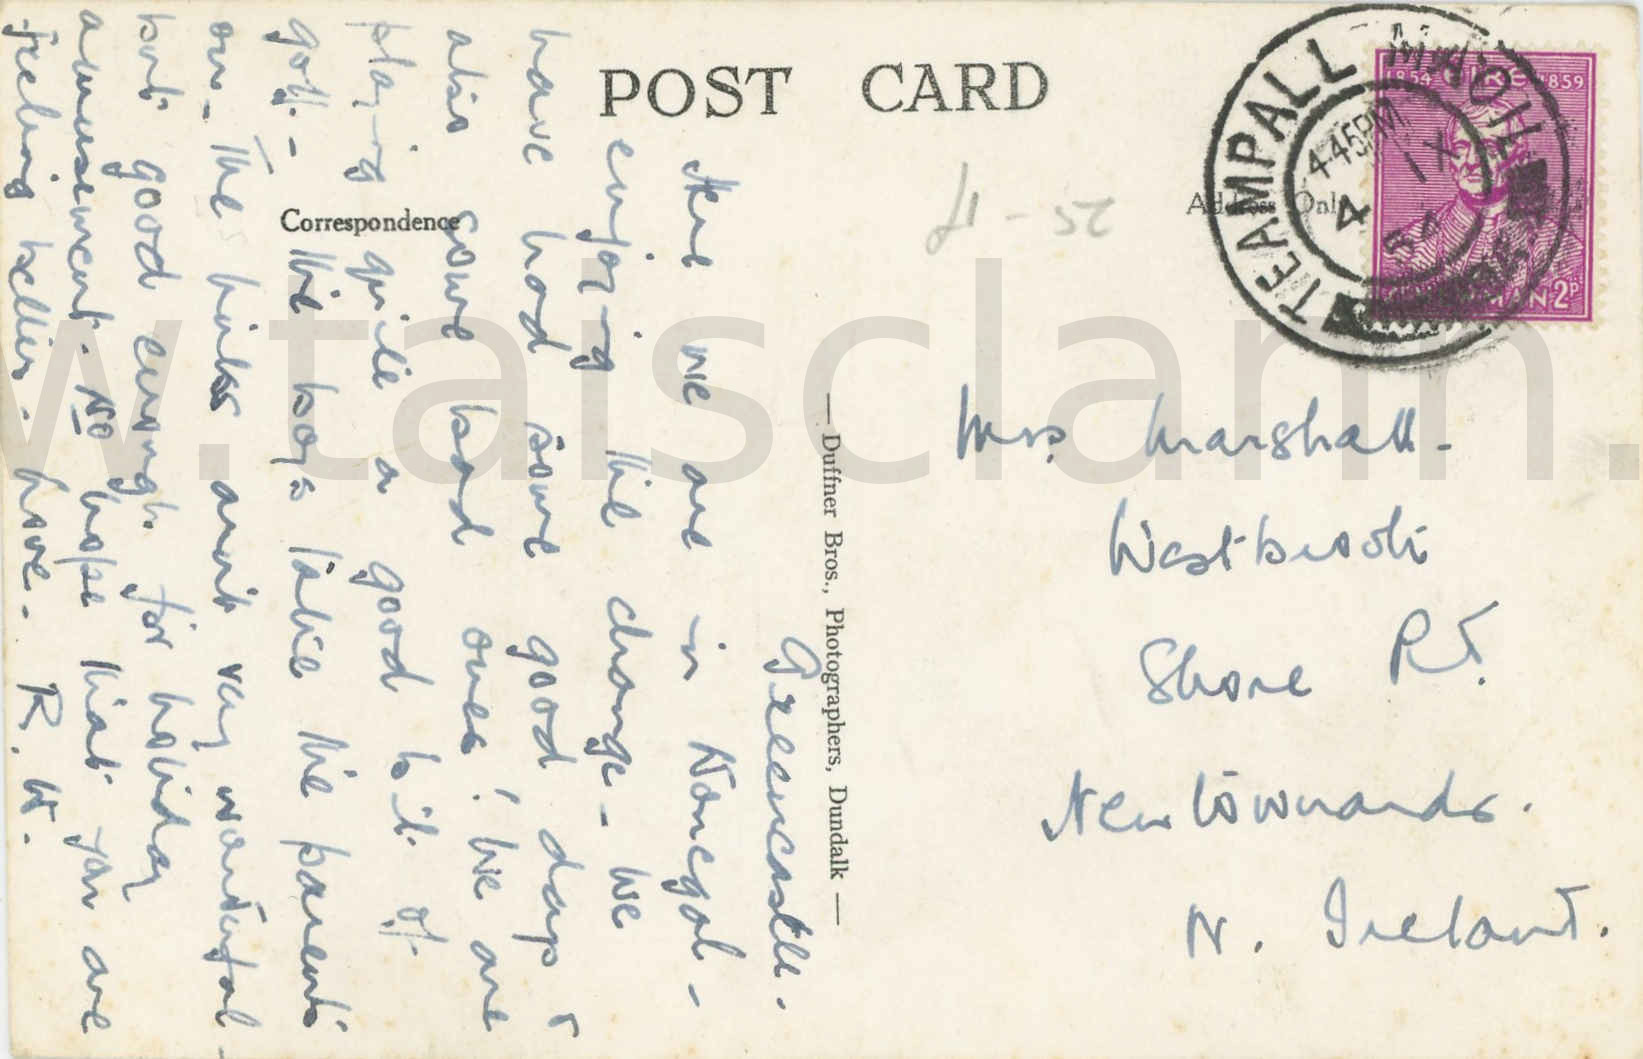 POST CARD
Correspondence
Address Only
Greencastle.
Here we are in Donegal -
enjoying the change - We
have had some good days &
also some bad ones! We are
playing quite a good bit of
golf - the boys take the parents
on - The links aint very wonderful
but good enough for holiday
amusement. Do hope that you are
feeling better - Love - R. W.
— Duffner Bros., Photographers, Dundalk —
Mrs. Marshall -
Westbrook
Shore Rd.
Newtownards.
N. Ireland.
TEAMPALL MAOTHA
4.45PM
4 IX
54
1854 EIRE 1859
2P
w.taisclann.